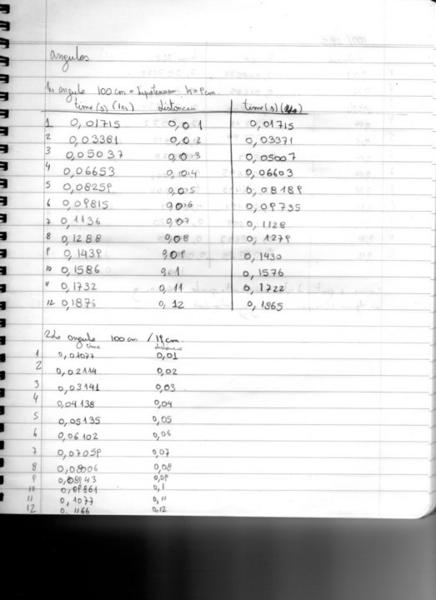 angulos
1er angulo 100 cm = hipotenusa h = 9 cm
time (s) (1er) distancia time (s) (2do)
1 0,01715 0,01 0,01715
2 0,03381 0,02 0,03371
3 0,05037 0,03 0,05007
4 0,06653 0,04 0,06603
5 0,08259 0,05 0,08189
6 0,09815 0,06 0,09735
7 0,1136 0,07 0,1128
8 0,1288 0,08 0,1279
9 0,1439 0,09 0,1430
10 0,1586 0,1 0,1576
11 0,1732 0,11 0,1722
12 0,1875 0,12 0,1865
2do angulo 100 cm / 19 cm
time distancia
1 0,01077 0,01
2 0,02114 0,02
3 0,03141 0,03
4 0,04138 0,04
5 0,05135 0,05
6 0,06102 0,06
7 0,07059 0,07
8 0,08006 0,08
9 0,08943 0,09
10 0,09861 0,1
11 0,1077 0,11
12 0,1166 0,12